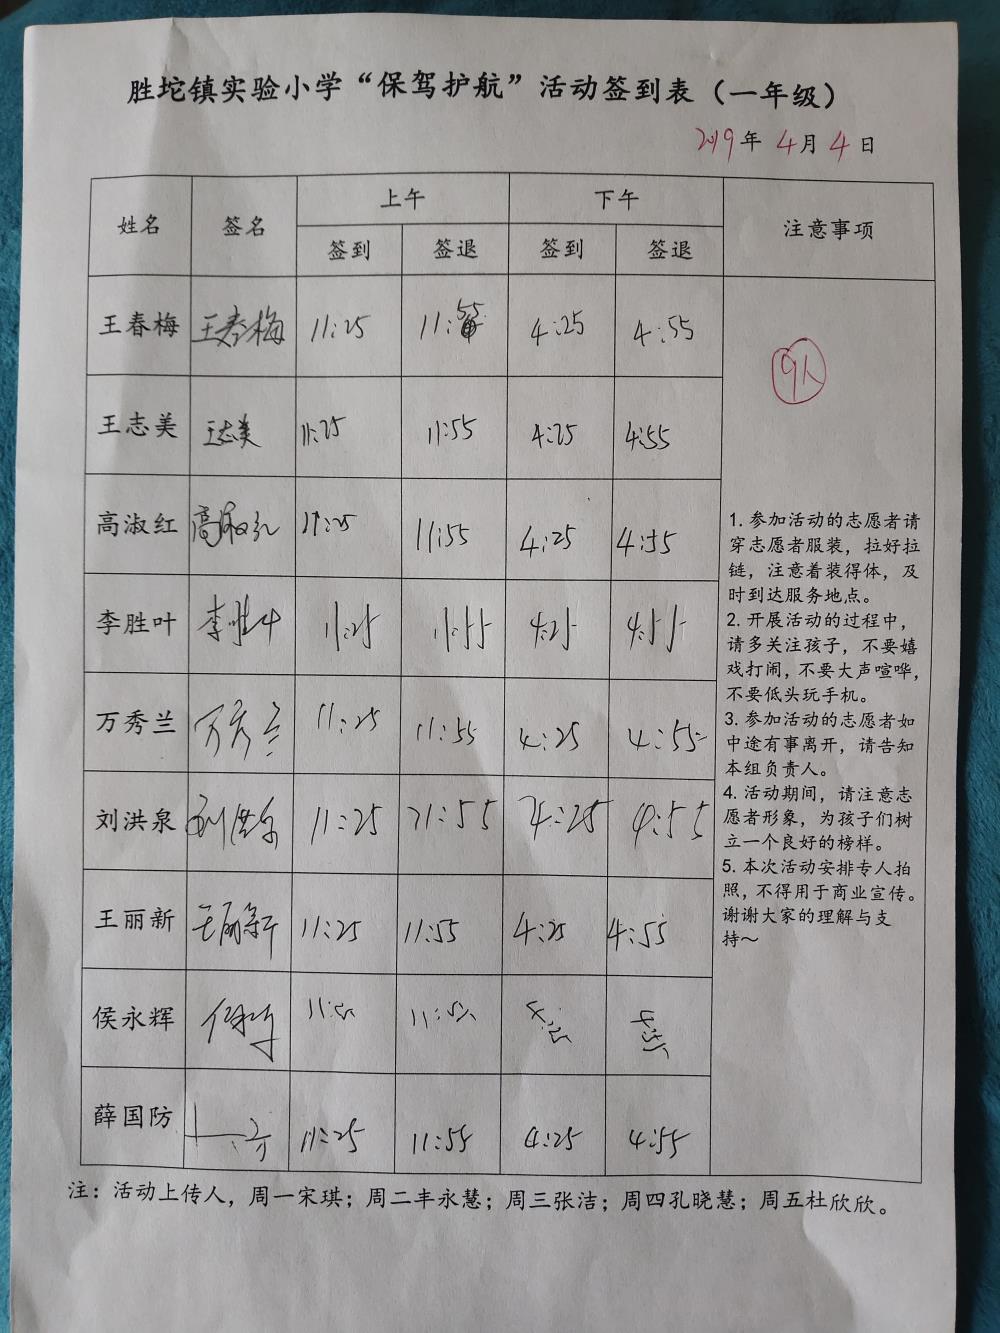 胜坨镇实验小学“保驾护航”活动签到表（一年级）
2019年 4月 4日
姓名 签名 上午 下午 注意事项
签到 签退 签到 签退
王春梅 王春梅 11:25 11:55 4:25 4:55
9人
王志美 王志美 11:25 11:55 4:25 4:55
高淑红 高淑红 11:25 11:55 4:25 4:55
李胜叶 李胜叶 11:25 11:55 4:25 4:55
万秀兰 万秀兰 11:25 11:55 4:25 4:55
刘洪泉 刘洪泉 11:25 11:55 4:25 4:55
王丽新 王丽新 11:25 11:55 4:25 4:55
侯永辉
薛国防 11:25 11:55 4:25 4:55
1. 参加活动的志愿者请
穿志愿者服装，拉好拉
链，注意着装得体，及
时到达服务地点。
2. 开展活动的过程中，
请多关注孩子，不要嬉
戏打闹，不要大声喧哗，
不要低头玩手机。
3. 参加活动的志愿者如
中途有事离开，请告知
本组负责人。
4. 活动期间，请注意志
愿者形象，为孩子们树
立一个良好的榜样。
5. 本次活动安排专人拍
照，不得用于商业宣传。
谢谢大家的理解与支
持～
注：活动上传人，周一宋琪；周二丰永慧；周三张洁；周四孔晓慧；周五杜欣欣。